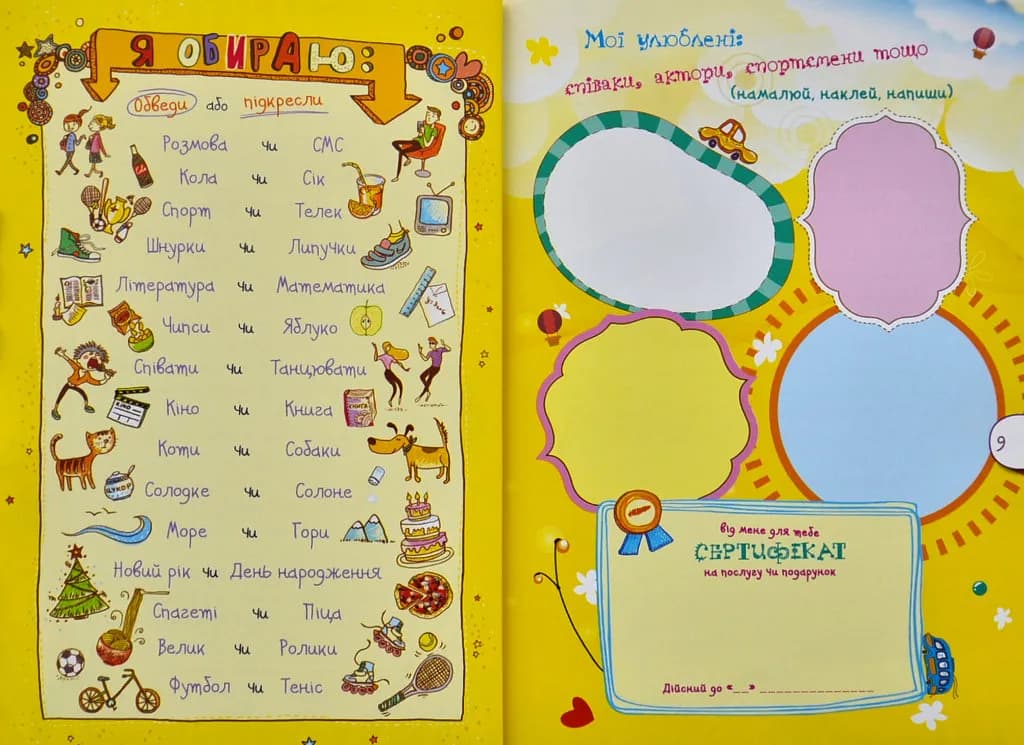 Я ОБИРАЮ:
Обведи або підкресли
Розмова чи СМС
Кола чи Сік
Спорт чи Телек
Шнурки чи Липучки
Література чи Математика
Чипси чи Яблуко
Співати чи Танцювати
КІНО
Кіно чи Книга
КНИГА
Коти чи Собаки
ЦУКОР
Солодке чи Солоне
Море чи Гори
Новий рік чи День народження
Спагеті чи Піца
Велик чи Ролики
Футбол чи Теніс
Мої улюблені:
співаки, актори, спортсмени тощо
(намалюй, наклей, напиши)
9
від мене для тебе
СЕРТИФІКАТ
на послугу чи подарунок
Дійсний до «__» ______________